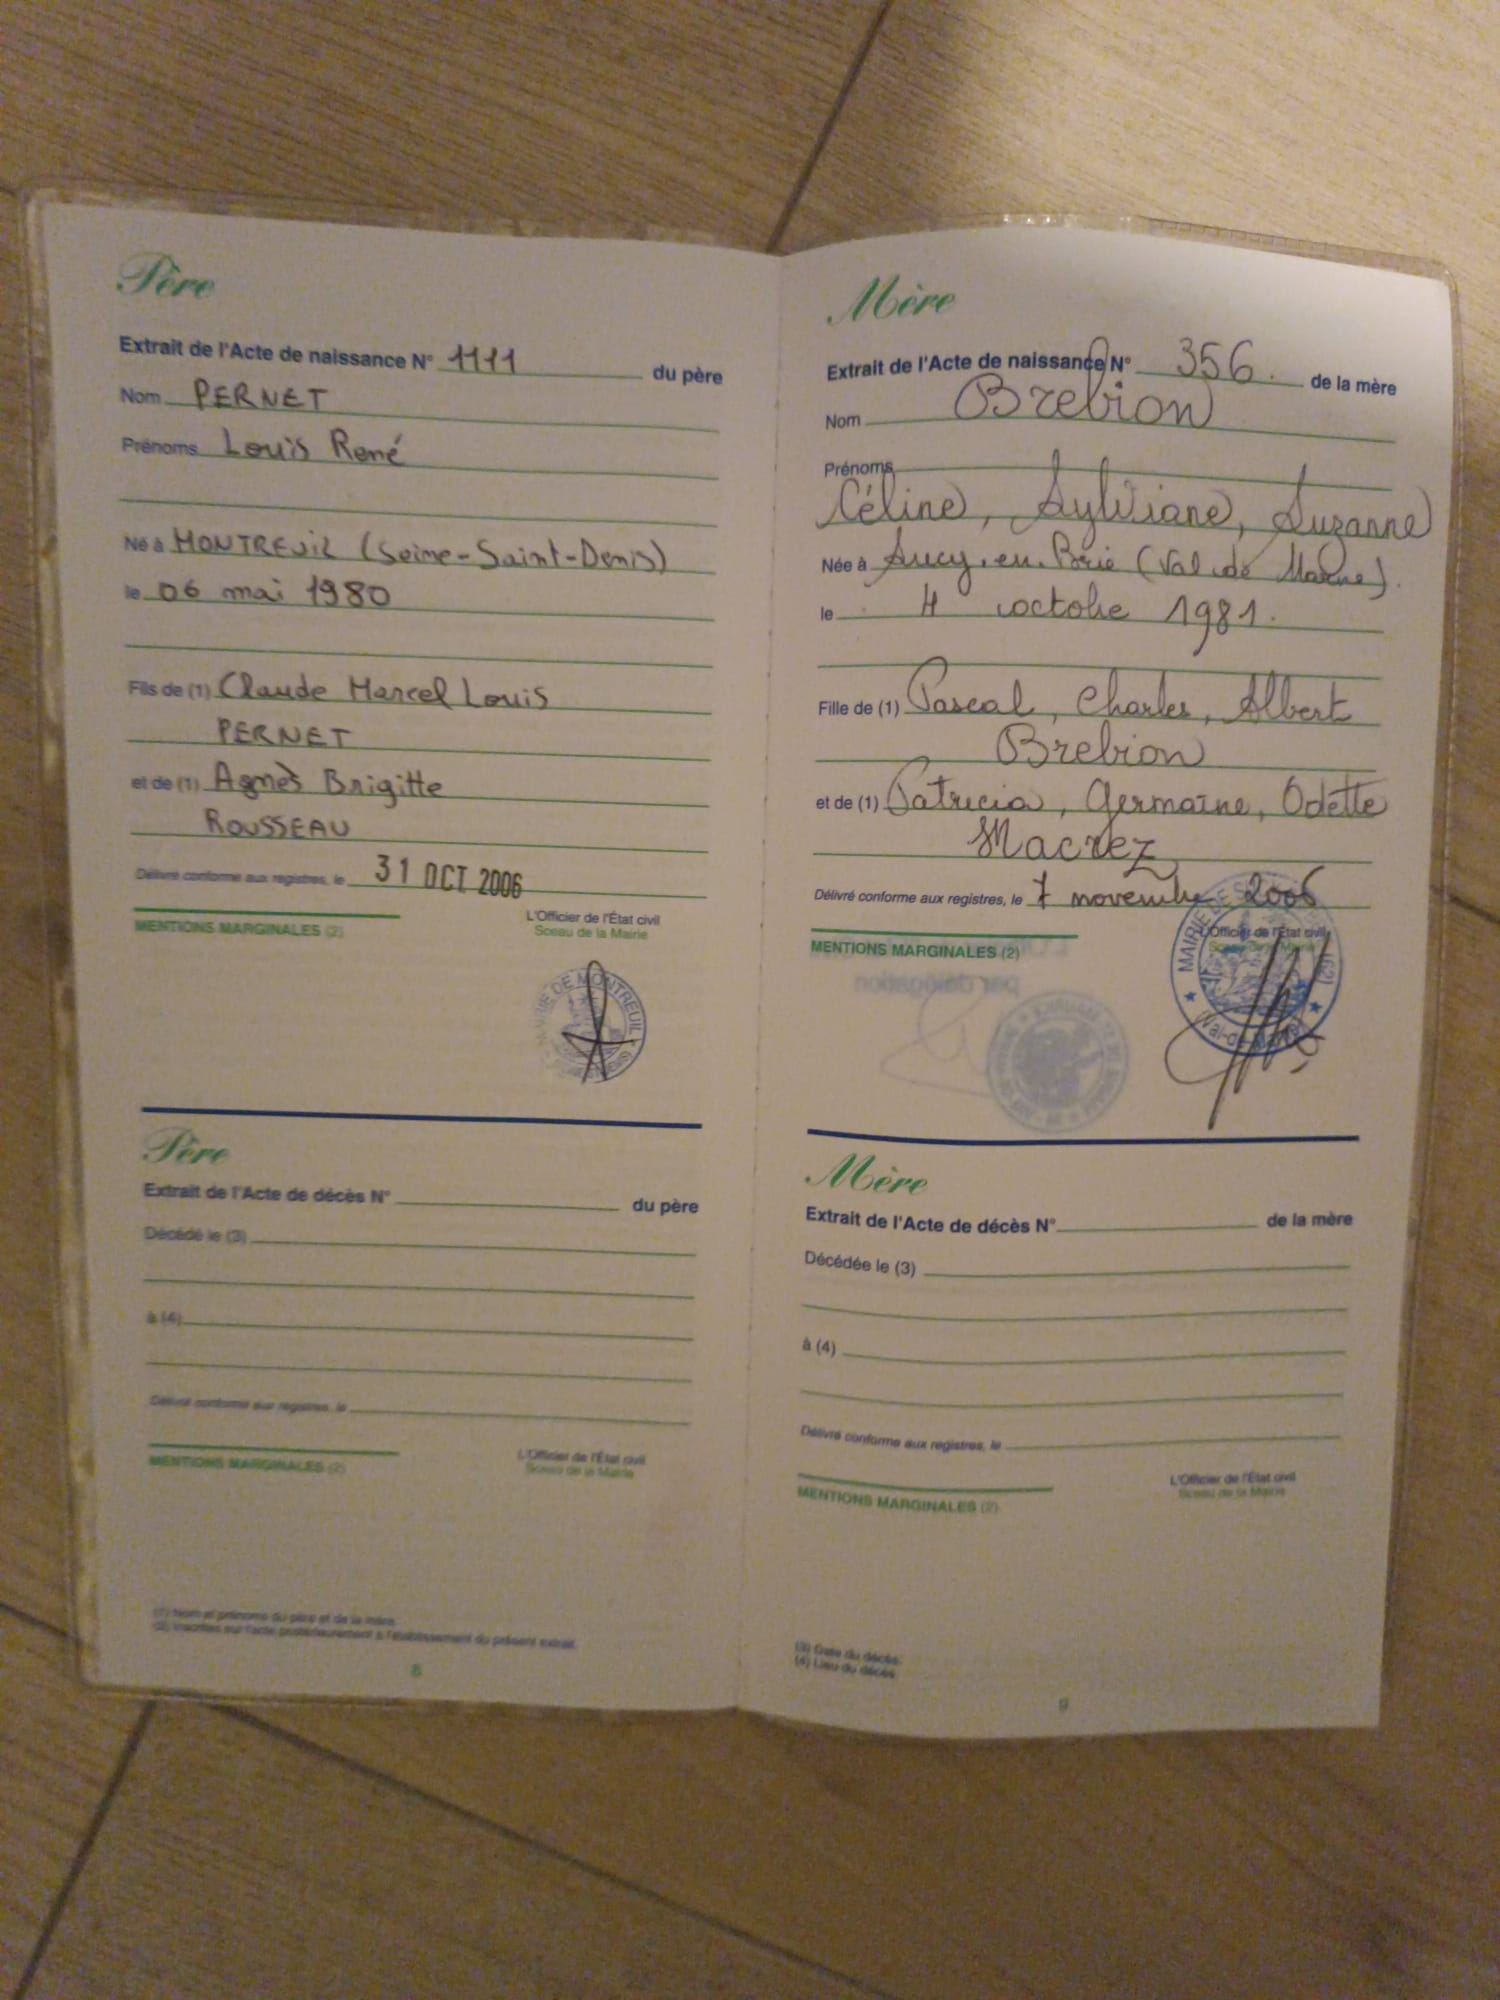 Père
Extrait de l'Acte de naissance N° 1111 du père
Nom PERNET
Prénoms Louis René
Né à MONTREUIL (Seine-Saint-Denis)
le 06 mai 1980
Fils de (1) Claude Marcel Louis
PERNET
et de (1) Agnès Brigitte
ROUSSEAU
Délivré conforme aux registres, le 31 OCT 2006
MENTIONS MARGINALES (2)
L'Officier de l'État civil
Sceau de la Mairie
MAIRIE DE MONTREUIL
Père
Extrait de l'Acte de décès N° du père
Décédé le (3)
à (4)
Délivré conforme aux registres, le
MENTIONS MARGINALES (2)
L'Officier de l'État civil
Sceau de la Mairie
(1) Nom et prénoms du père et de la mère.
(2) Inscrites sur l'acte postérieurement à l'établissement du présent extrait.
8
Mère
Extrait de l'Acte de naissance N° 356. de la mère
Nom Brebion
Prénoms
Céline, Sylviane, Suzanne
Née à Sucy.en.Brie (Val de Marne).
le 4 octobre 1981.
Fille de (1) Pascal, Charles, Albert
Brebion
et de (1) Patricia, Germaine, Odette
Macrez
Délivré conforme aux registres, le 7 novembre 2006
MENTIONS MARGINALES (2)
L'Officier de l'État civil
Sceau de la Mairie
MAIRIE DE
par délégation
Mère
Extrait de l'Acte de décès N° de la mère
Décédée le (3)
à (4)
Délivré conforme aux registres, le
MENTIONS MARGINALES (2)
L'Officier de l'État civil
Sceau de la Mairie
(3) Date du décès.
(4) Lieu du décès.
9